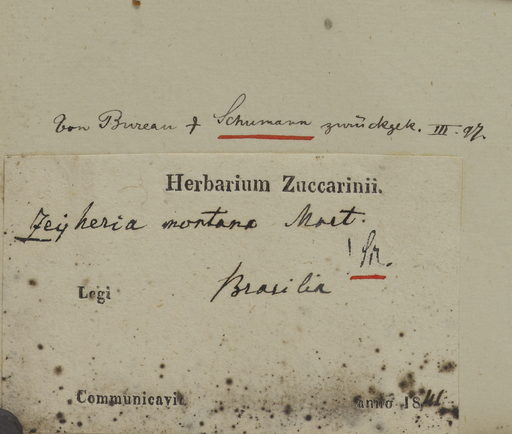 Von Bureau & Schumann zurückgek. III. 97.
Herbarium Zuccarinii.
Zeyheria montana Mart.
! Sn.
Legi Brasilia
Communicavit anno 1841